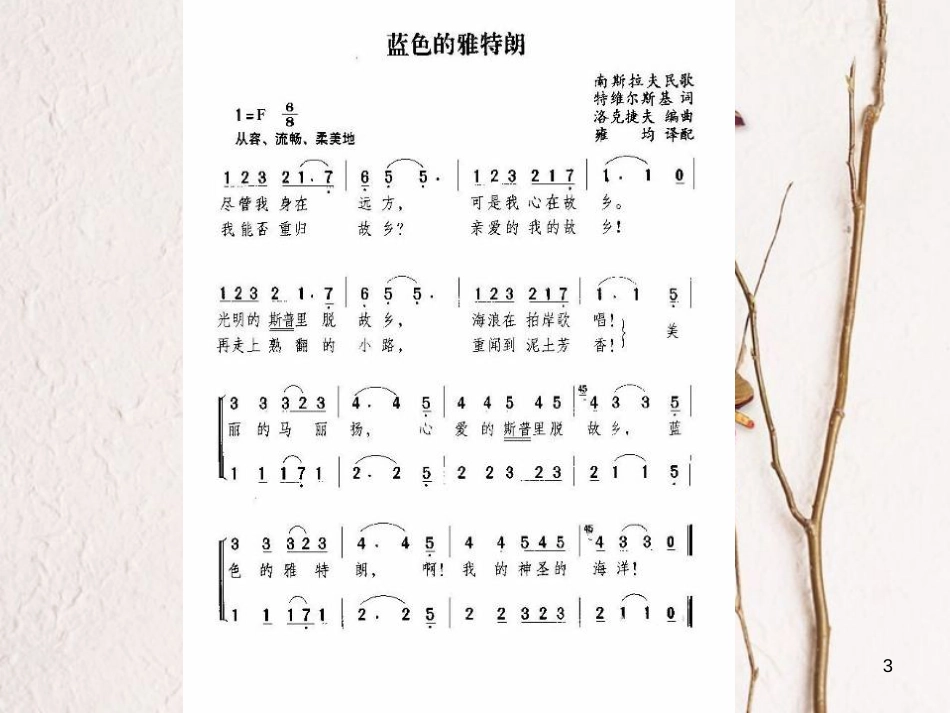 3
蓝色的雅特朗
南斯拉夫民歌
特维尔斯基 词
洛克捷夫 编曲
雍 均 译配
1=F 6/8
从容、流畅、柔美地
1 2 3 2 1. 7 | 6 5 5. | 1 2 3 2 1 7 | 1. 1 0
尽管我 身在 远 方, 可是我 心在故 乡。
我能否 重归 故 乡? 亲爱的 我的故 乡!
1 2 3 2 1. 7 | 6 5 5. | 1 2 3 2 1 7 | 1. 1 5
光明的 斯普里 脱 故 乡, 海浪在 拍岸歌 唱! 美
再走上 熟 翻 的 小 路, 重闻到 泥土芳 香!
3 3 3 2 3 | 4. 4 5 | 4 4 5 4 5 | 45 4 3 3 5
丽 的 马 丽 扬, 心 爱 的 斯普里脱 故 乡, 蓝
1 1 1 7 1 | 2. 2 5 | 2 2 3 2 3 | 2 1 1 5
3 3 3 2 3 | 4. 4 5 | 4 4 5 4 5 | 45 4 3 3 0
色 的 雅 特 朗, 啊! 我 的 神圣的 海 洋!
1 1 1 7 1 | 2. 2 5 | 2 2 3 2 3 | 2 1 1 0